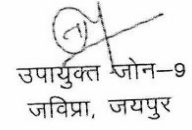 उपायुक्त जोन-9
जविप्रा, जयपुर